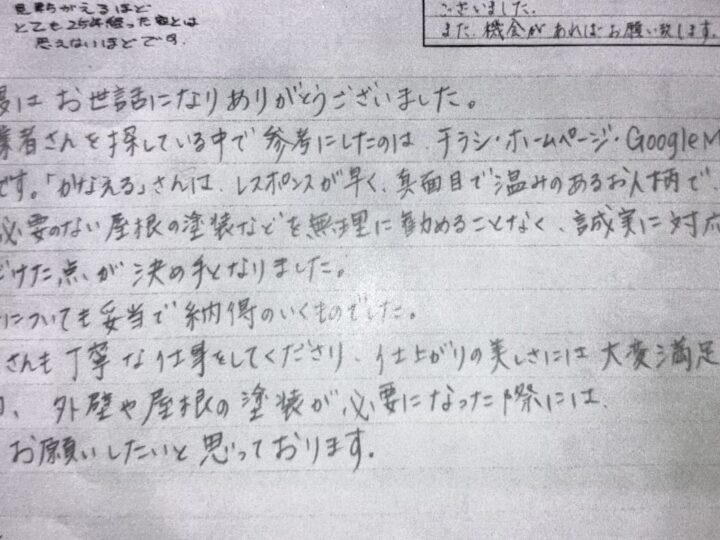 見ちがえるほど
とても25年経った家とは
思えないほどです。
ございました。
また、機会があればお願い致します。
はお世話になりありがとうございました。
業者さんを探している中で参考にしたのは、チラシ・ホームページ・Google M
です。「かなえる」さんは、レスポンスが早く、真面目で温みのあるお人柄で
必要のない屋根の塗装などを無理に勧めることなく、誠実に対応
だけた点が決め手となりました。
についても妥当で納得のいくものでした。
さんも丁寧な仕事をしてくださり、仕上がりの美しさには大変満足
、外壁や屋根の塗装が必要になった際には、
お願いしたいと思っております。